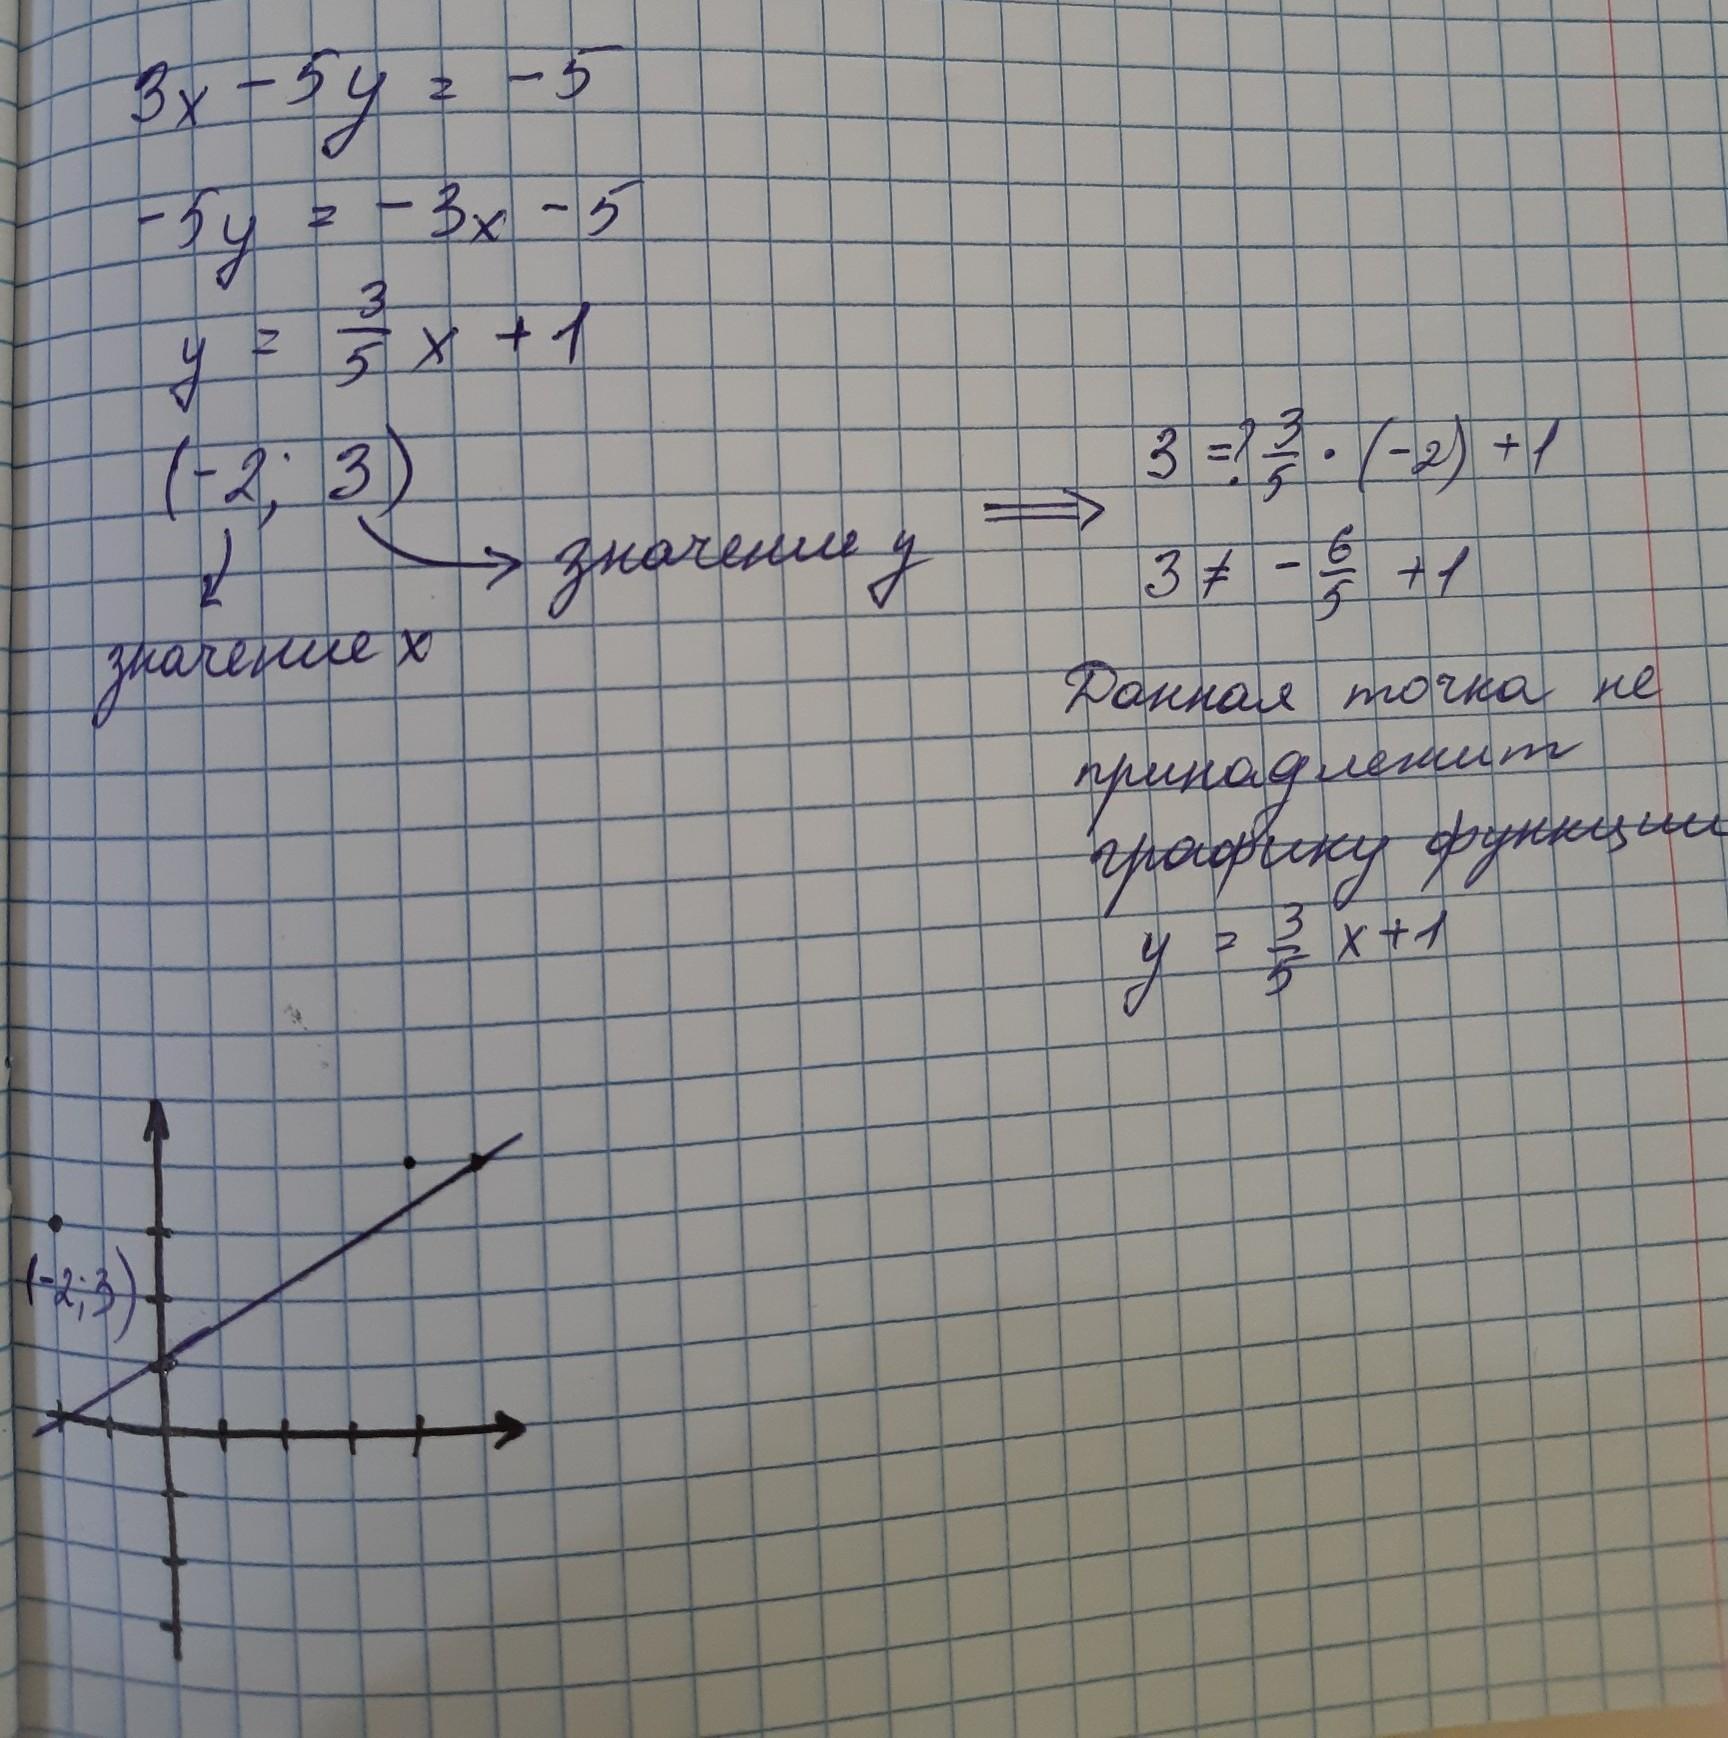 3x - 5y = -5
-5y = -3x - 5
y = 3/5 x + 1
(-2; 3)
значение y
значение x
3 =? 3/5 · (-2) + 1
3 ≠ - 6/5 + 1
Данная точка не
принадлежит
графику функции
y = 3/5 x + 1
(-2; 3)